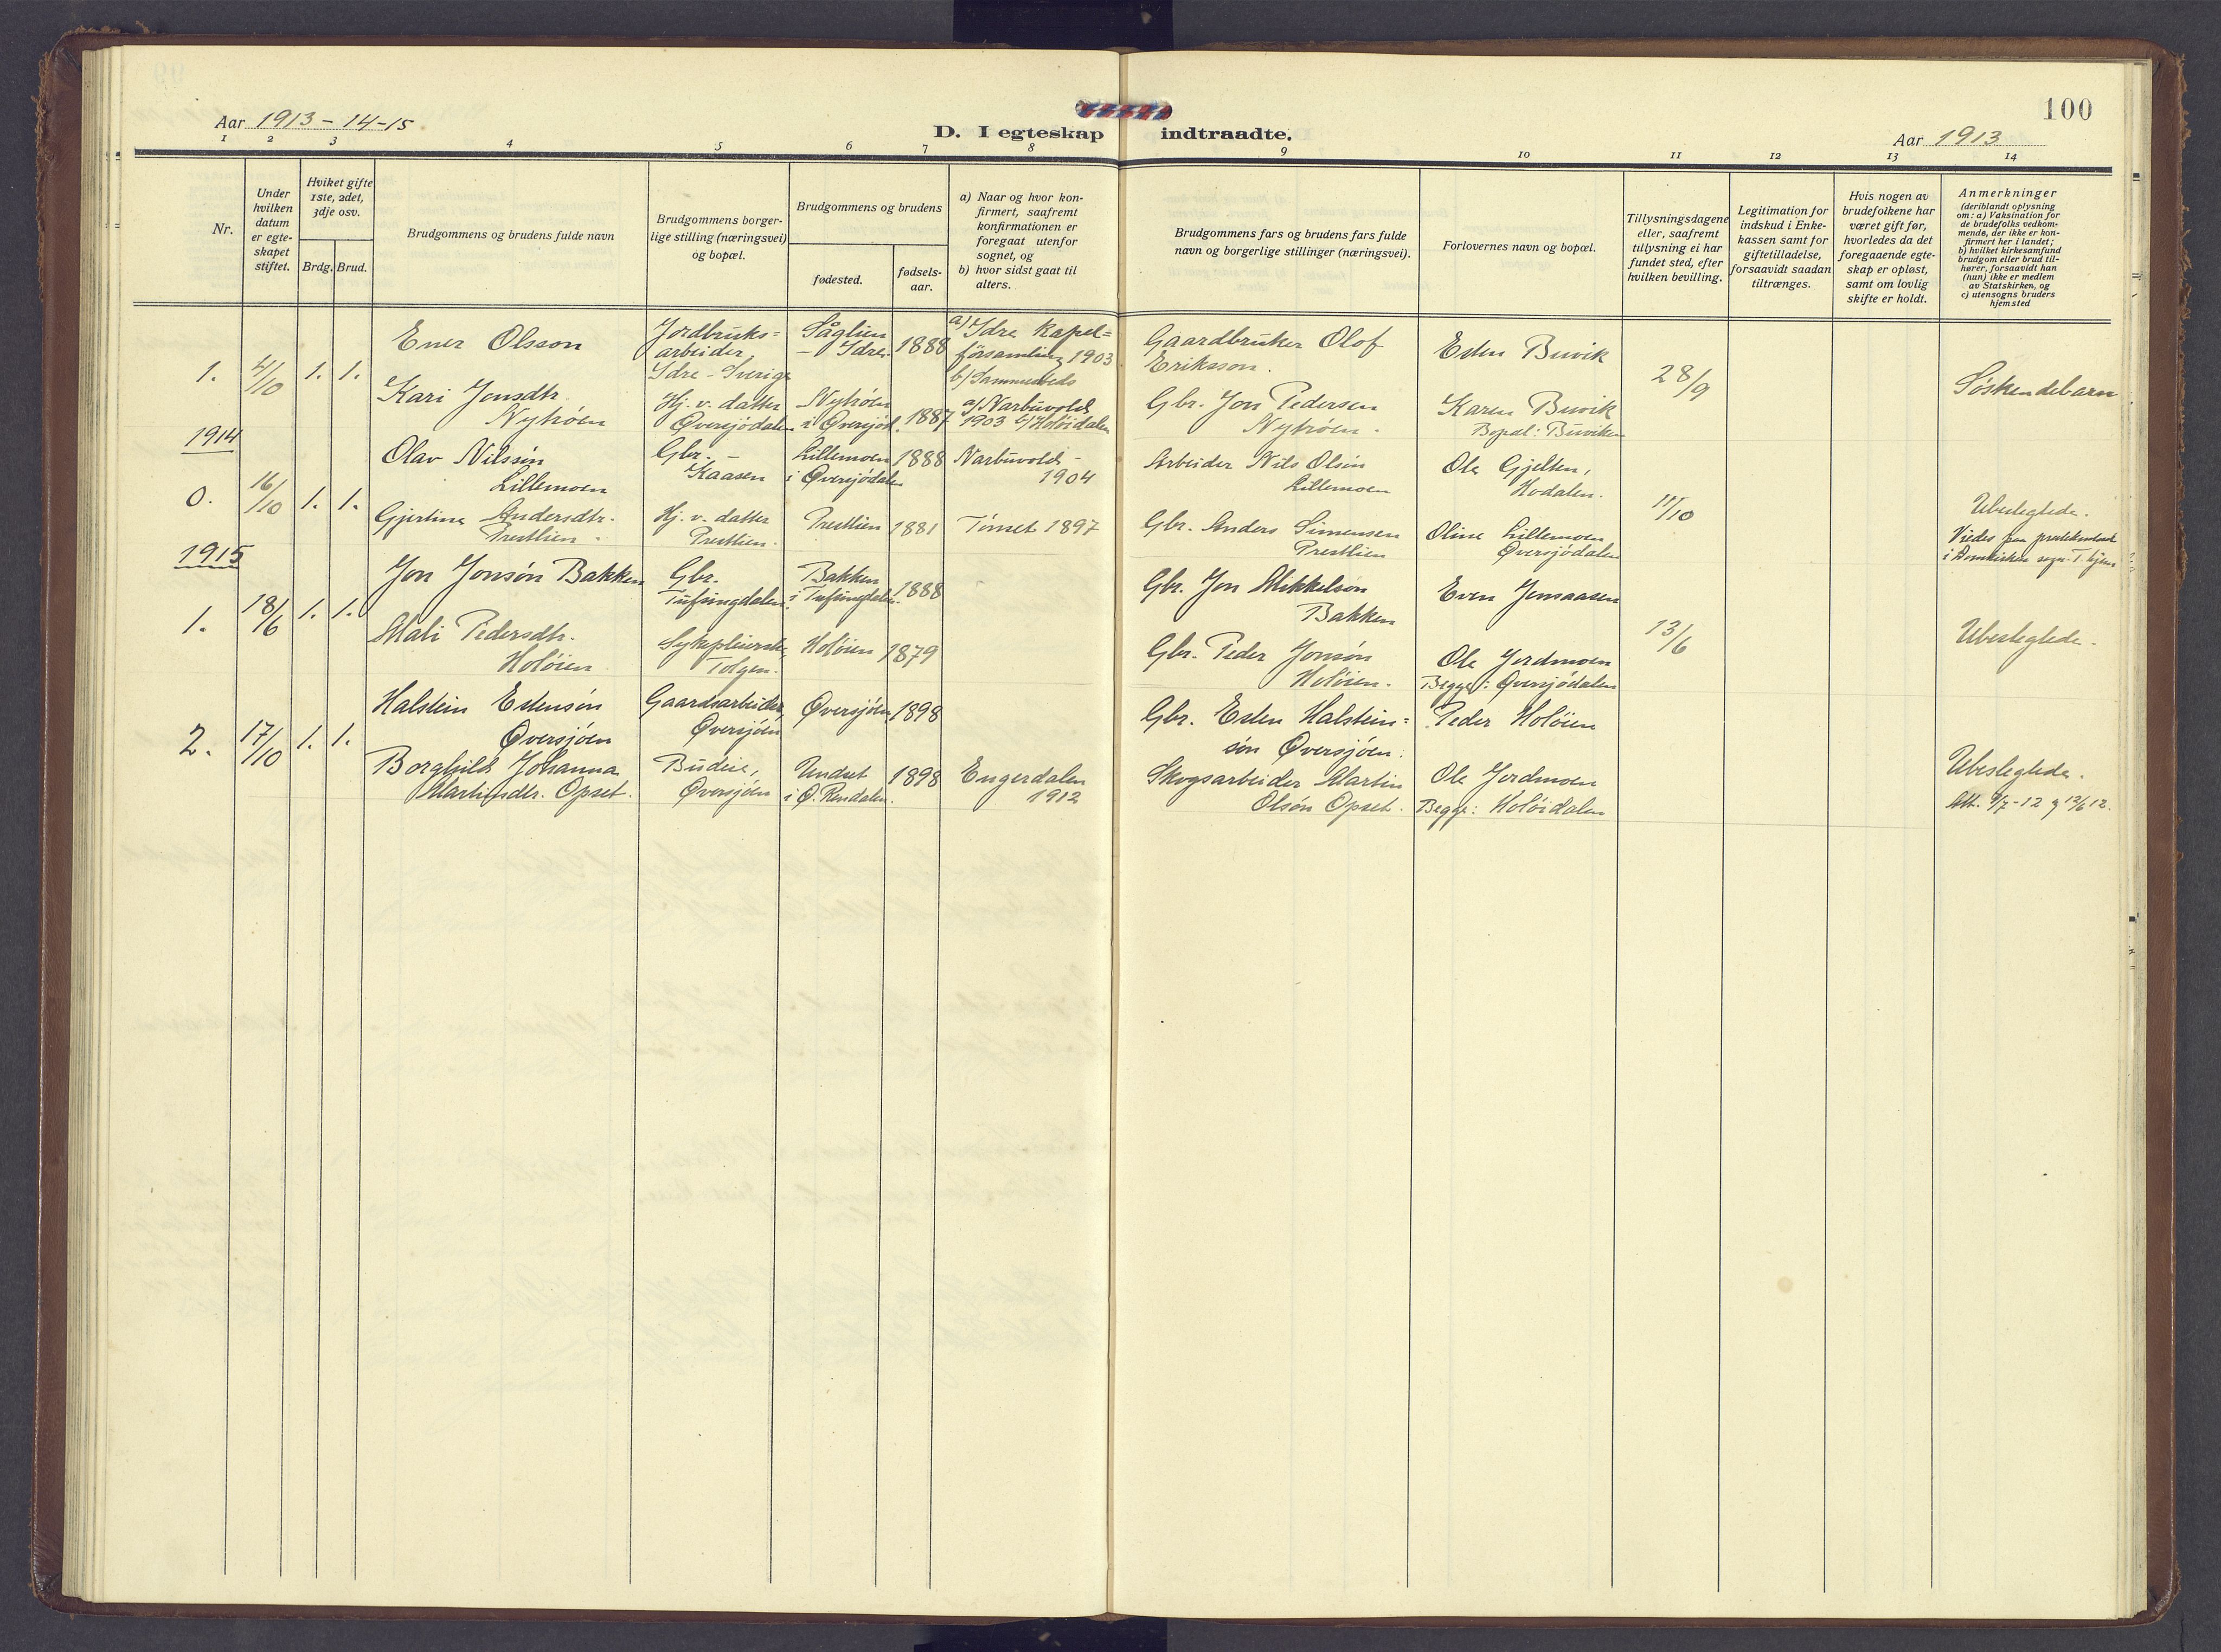 100
Aar 1913 - 14 - 15
D. I egteskap indtraadte.
Aar 1913
1 2 3 4 5 6 7 8 9 10 11 12 13 14
Nr.
Under
hvilken
datum
er egte-
skapet
stiftet.
Hviket gifte
1ste, 2det,
3dje osv.
Brdg. Brud.
Brudgommens og brudens fulde navn
Brudgommens borger-
lige stilling (næringsvei)
og bopæl.
Brudgommens og brudens
fødested.
fødsels-
aar.
a) Naar og hvor kon-
firmert, saafremt
konfirmationen er
foregaat utenfor
sognet, og
b) hvor sidst gaat til
alters.
Brudgommens fars og brudens fars fulde
navn og borgerlige stillinger (næringsvei).
Forlovernes navn og bopæl.
Tillysningsdagene
eller, saafremt
tillysning ei har
fundet sted, efter
hvilken bevilling.
Legitimation for
indskud i Enke-
kassen samt for
giftetilladelse,
forsaavidt saadan
tiltrænges.
Hvis nogen av
brudefolkene har
været gift før,
hvorledes da det
foregaaende egte-
skap er opløst,
samt om lovlig
skifte er holdt.
Anmerkninger
(deriblandt oplysning
om: a) Vaksination for
de brudefolks vedkom-
mende, der ikke er kon-
firmert her i landet;
b) hvilket kirkesamfund
brudgom eller brud til-
hører, forsaavidt han
(hun) ikke er medlem
av Statskirken, og
c) utensogns bruders
hjemsted
1. 4/10 1. 1.
Ener Olsson
Jordbruks-
arbeider,
Idre - Sverige
Såglien
- Idre.
1888
a) Idre kapel=
församling 1903
b) Sammesteds
Gaardbruker Olof
Eriksson.
Esten Buvik
28/9
Søskendebarn
Kari Jonsdtr.
Nytrøen
Hj. v. datter
Øversjødalen
Nytrøen
i Øversjød.
1887
a) Narbuvold
1903 b) Holøidalen
Gbr. Jon Pedersen
Nytrøen.
Karen Buvik
Bopæl: Buviken
1914
0. 16/10 1. 1.
Olav Nilssøn
Lillemoen
Gbr. -
Kaasen
Lillemoen
i Øversjødalen
1888
Narbuvold -
1904
Arbeider Nils Olsøn
Lillemoen
Ole Gjelten,
Hodalen.
11/10
Ubeslegtede.
Gjertine Andersdtr.
Prestlien.
Hj. v. datter
Prestlien.
Prestlien
1881
Tönset 1897
Gbr. Anders Simensen
Prestlien
Oline Lillemoen
Øversjødalen
Vies
i Domkirken
1915
1. 18/6 1. 1.
Jon Jonsøn Bakken
Gbr.
Tufsingdalen.
Bakken
i Tufsingdalen.
1888
Gbr. Jon Mikkelsøn
Bakken
Even Jensaasen
13/6
Ubeslegtede.
Mali Pedersdtr.
Holøien
Sykepleierske,
Tolgen.
Holøien
1879
Gbr. Peder Jonsøn
Holøien.
Ole Jordmoen
Begge: Øversjødalen
2. 17/10 1. 1.
Halstein Estensøn
Øversjøen
Gaardsarbeider,
Øversjøen
Øversjøen
1898
Gbr. Esten Halstein=
søn Øversjøen.
Peder Holøien
Borghild Johanna
Martinsdtr. Opset.
Budeie,
Øversjøen
Undset
i Ø. Rendalen.
1898
Engerdalen
1912
Skogsarbeider Martin
Olsøn Opset.
Ole Jordmoen
Begge: Holøidalen
Ubeslegtede.
Att. 9/7-12 og 12/6 12.